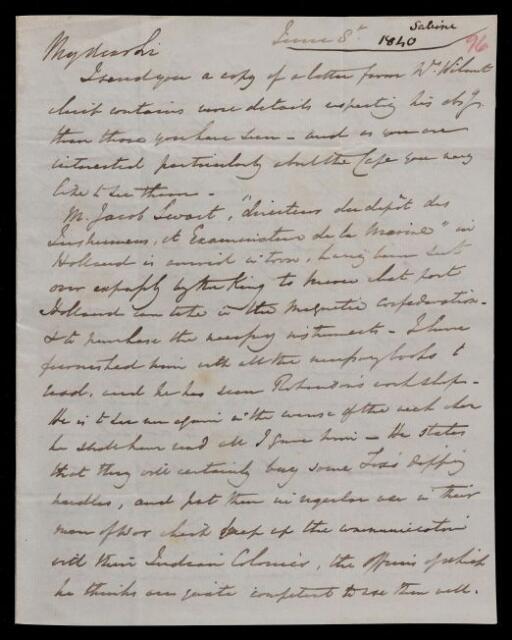 Sabine
June 8th 1840
96
My dear Sir
I send you a copy of a letter from Mr. Wilmot
which contains more details respecting his obsns.
than those you have seen - and as you are
interested particularly about the Cape you may
like to see them -
M. Jacob Swart, "directeur du depôt des
Instrumens, et Examinateur de la Marine" in
Holland is arrived in town, having been sent
over expressly by the King to know what part
Holland can take in the Magnetic Confederation -
& to purchase the necessary instruments - I have
furnished him with all the necessary books to
read, and he has seen Robinson's workshop -
He is to see me again in the course of the week when
he shall have read all I gave him - He states
that they will certainly buy some Fox's dipping
needles, and put them in regular use in their
men of war which keep up the communication
with their Indian Colonies, the officers of which
he thinks are quite competent to use them well.